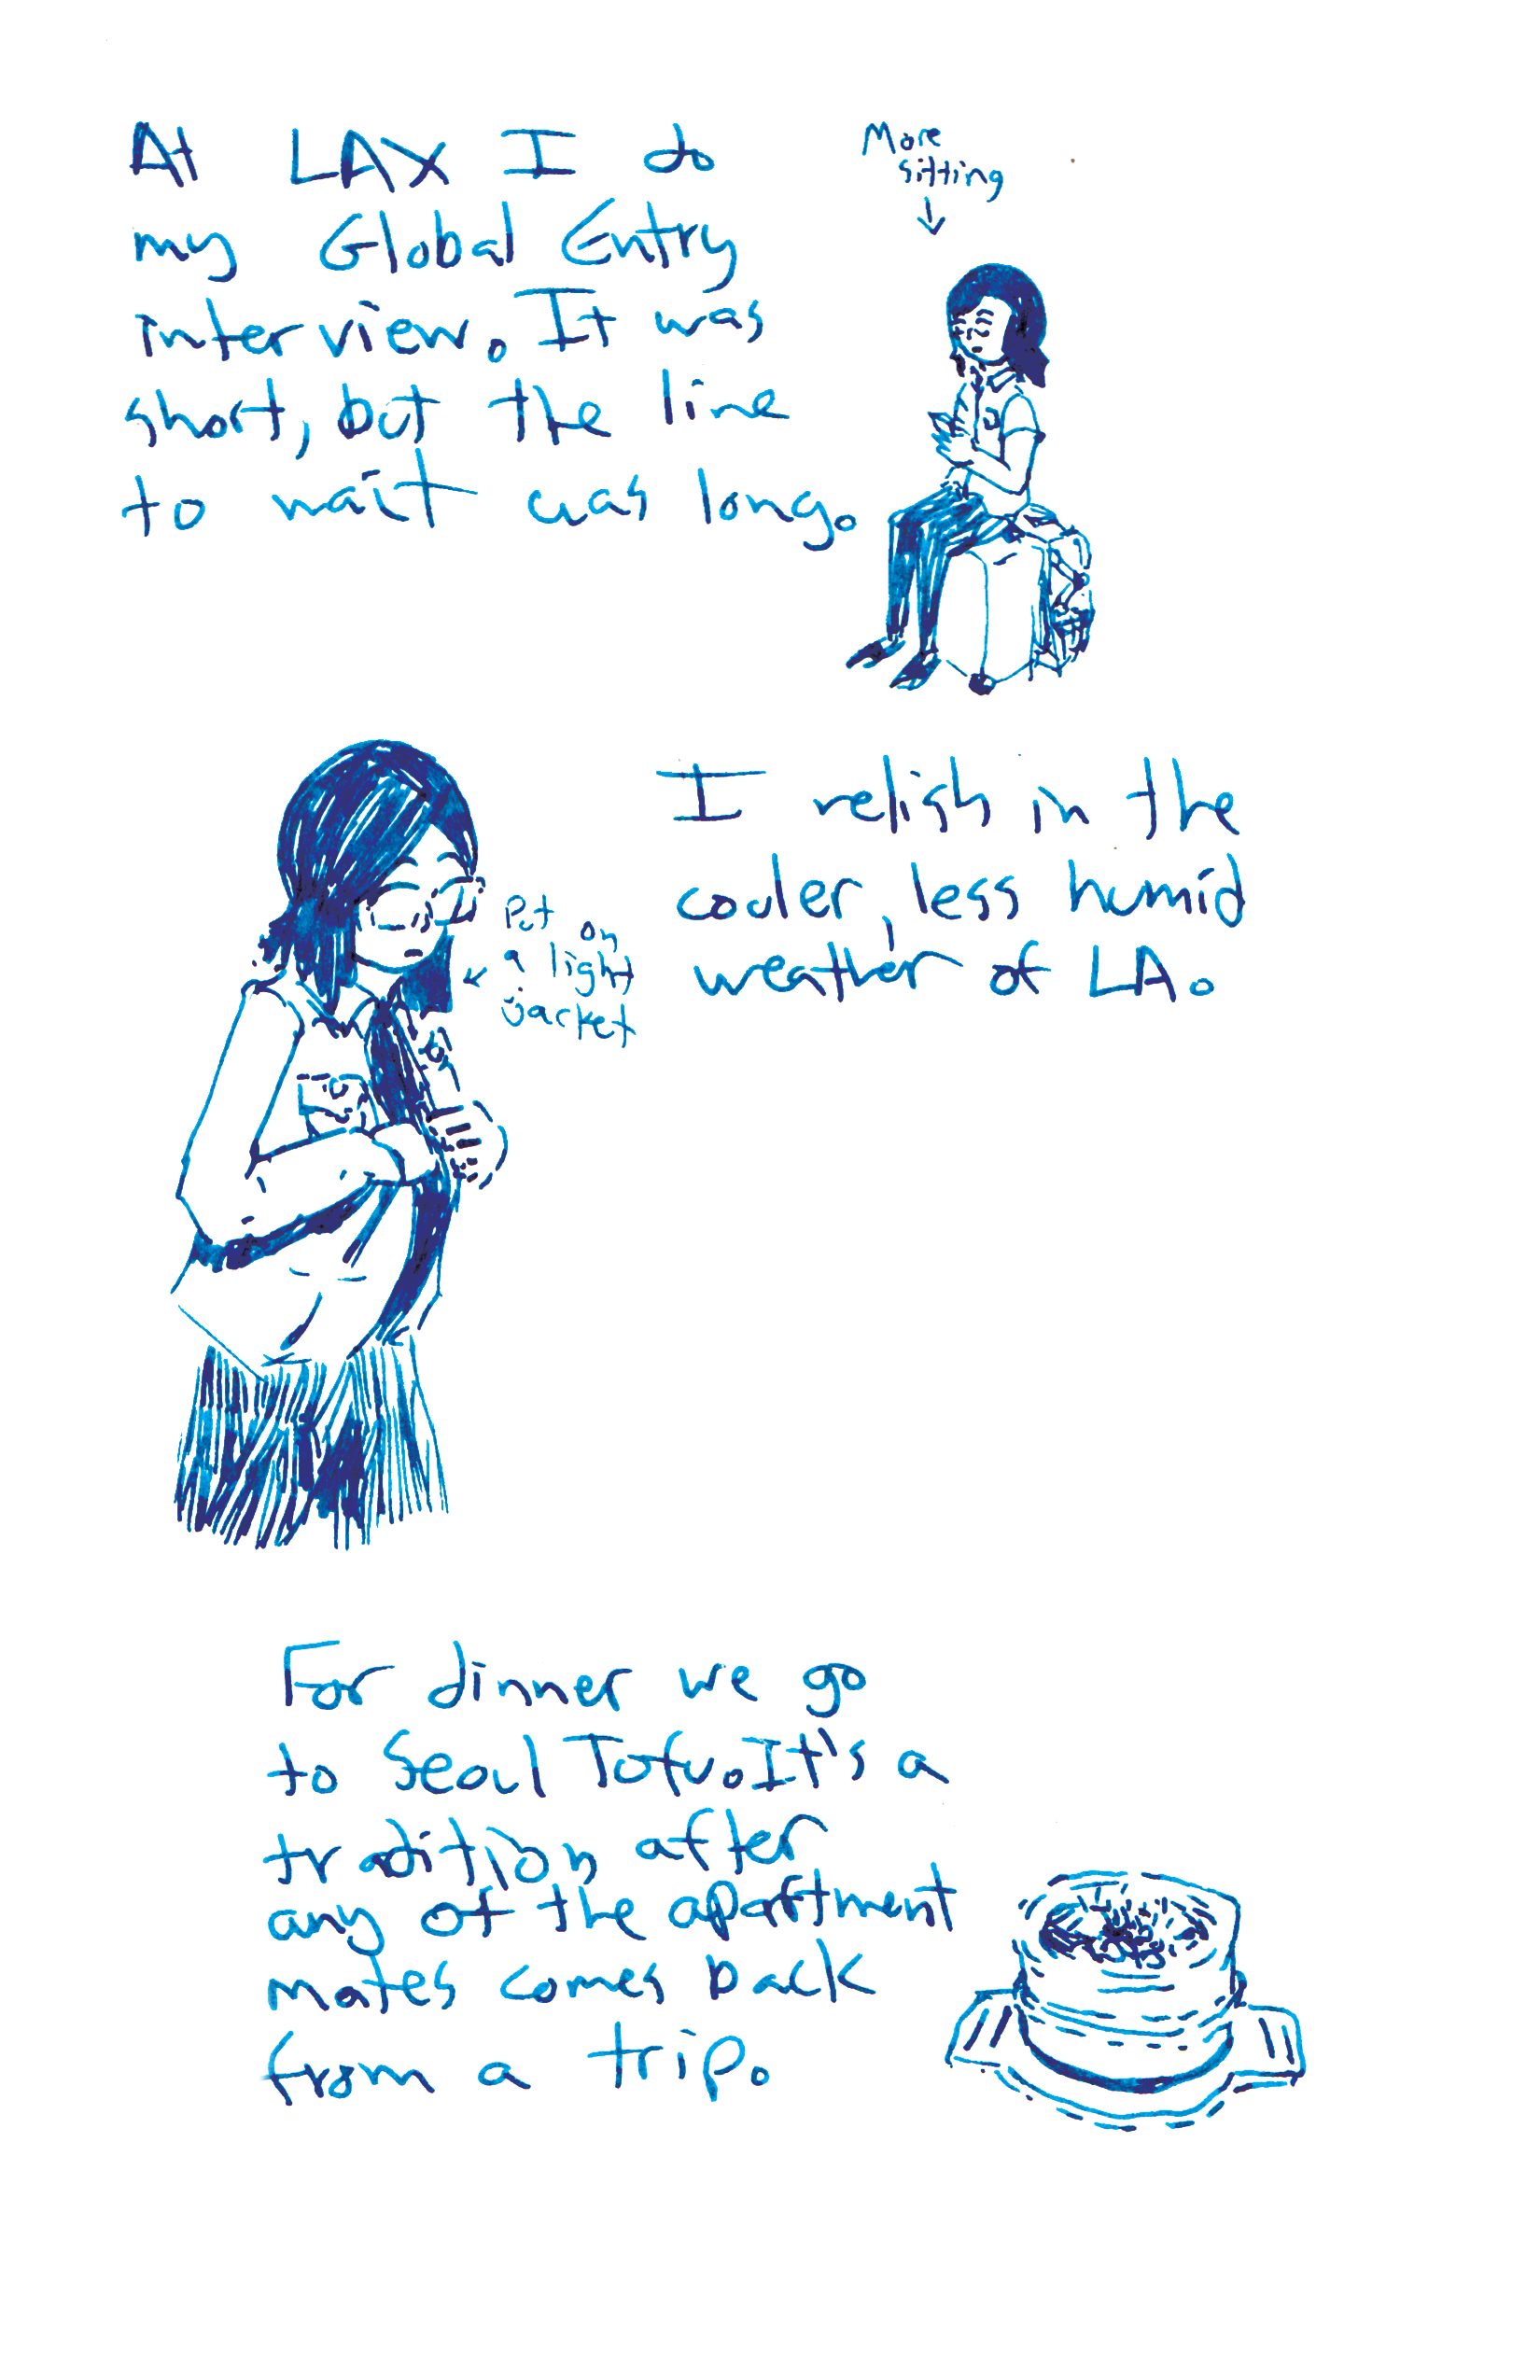 At LAX I do
my Global Entry
interview. It was
short, but the line
to wait was long.
More
sitting
I relish in the
cooler, less humid
weather of LA.
Put on
a light
jacket
For dinner we go
to Seoul Tofu. It's a
tradition after
any of the apartment
mates comes back
from a trip.